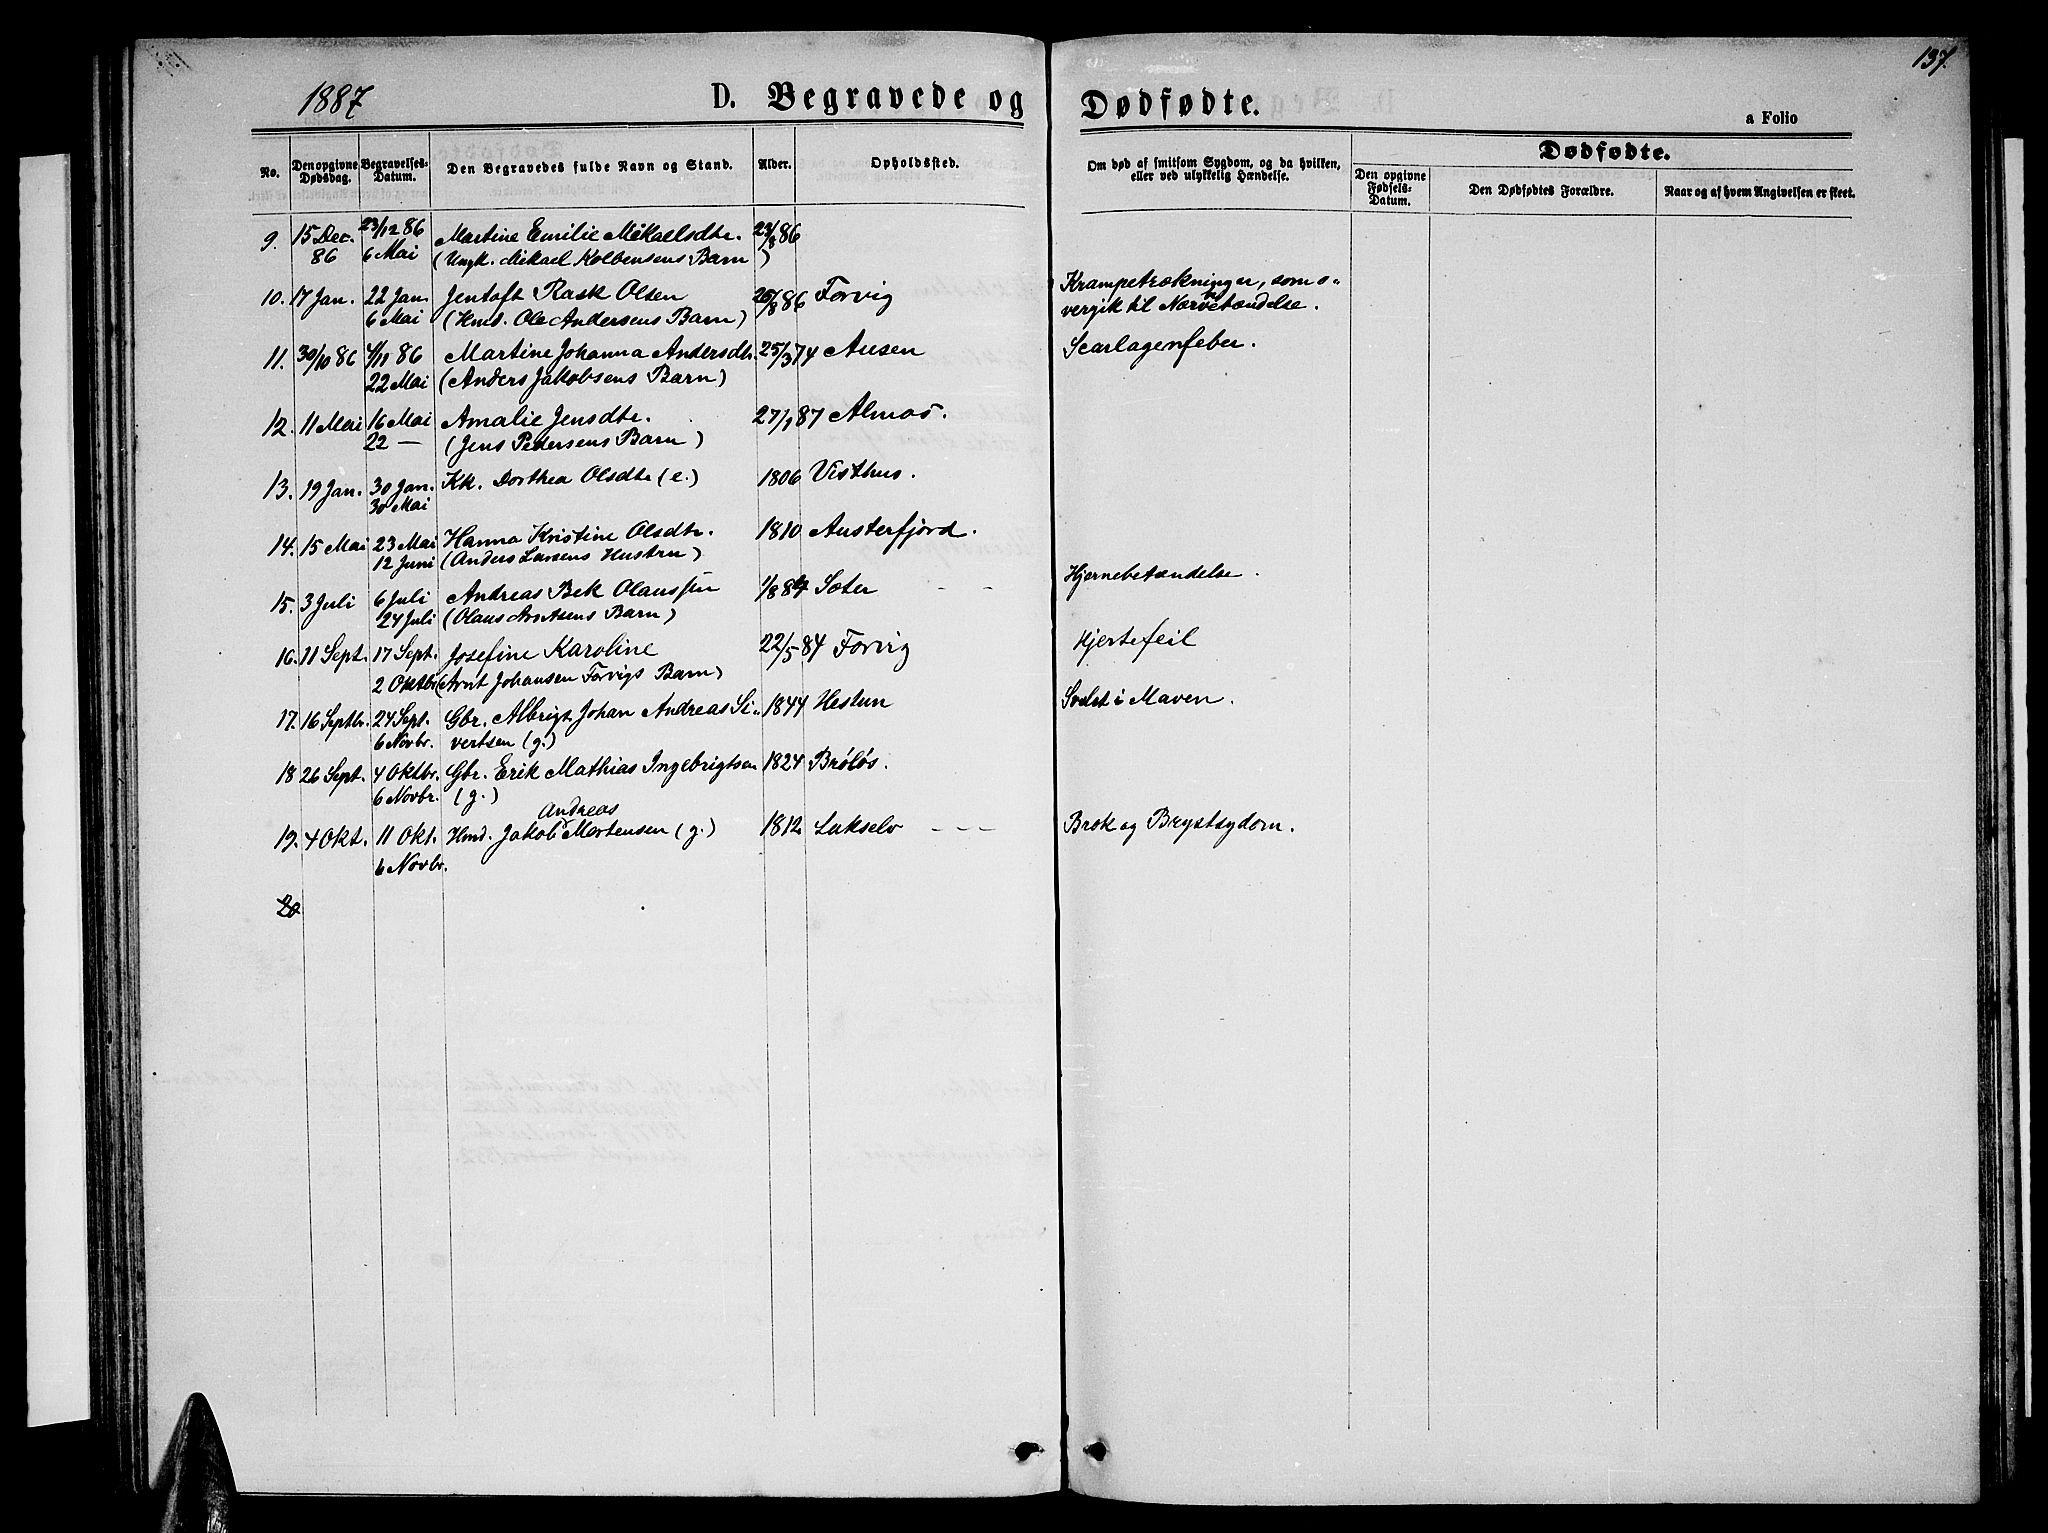 137.
1887 D. Begravede og Dødfødte. a Folio
No. Den opgivne Dødsdag. Begravelses-Datum. Den Begravedes fulde Navn og Stand. Alder. Opholdssted. Om død af smitsom Sygdom, og da hvilken, eller ved ulykkelig Hændelse. Dødfødte.
Den opgivne Fødsels-Datum. Den Dødfødtes Forældre. Naar og af hvem Angivelsen er skeet.
9. 15 Dec. 23/12 86 Martine Emilie Mikaelsdtr. 23/8 86
86 6 Mai (Ungk. Mikael Kolbensens Barn)
10. 17 Jan. 22 Jan. Jentoft Rask Olsen 26/8 86 Forvig Krampetrækninger, som o-
6 Mai (Hmd. Ole Andersens Barn) vergik til Nærvebetændelse.
11. 30/10 86 4/11 86 Martine Johanna Andersdtr. 25/3 74 Ausen Scarlagenfeber.
22 Mai (Anders Jakobsens Barn)
12. 11 Mai 16 Mai Amalie Jensdtr. 27/1 87 Almos.
22 — (Jens Pedersens Barn)
13. 19 Jan. 30 Jan. Kk. Dorthea Olsdtr (e.) 1806 Visthus.
30 Mai
14. 15 Mai 23 Mai Hanna Kristine Olsdtr. 1810 Austerfjord.
12 Juni (Anders Larsens Hustru)
15. 3 Juli 6 Juli Andreas Bek Olaussen 1/8 84 Sæter - - Hjernebetændelse.
24 Juli (Olaus Arntsens Barn)
16. 11 Sept. 17 Sept. Josefine Karoline 22/5 84 Forvig Hjertefeil
2 Oktbr (Arnt Johansen Forvigs Barn)
17. 16 Septbr. 24 Sept. Gbr. Albrigt Johan Andreas Si- 1844 Hestun Svulst i Maven.
6 Novbr. vertsen (g.)
18 26 Sept. 4 Oktbr. Gbr. Erik Mathias Ingebrigtsen 1824 Bröløs.
6 Novbr. (g.)
Andreas
19. 4 Okt. 11 Okt. Hmd. Jakob Mortensen (g.) 1812 Lukselv - - - Brok og Brystsydom.
6 Novbr.
20